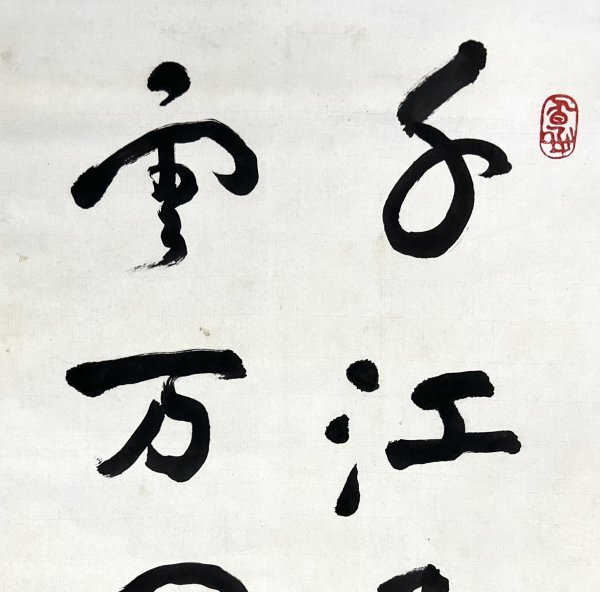 千江
雲万